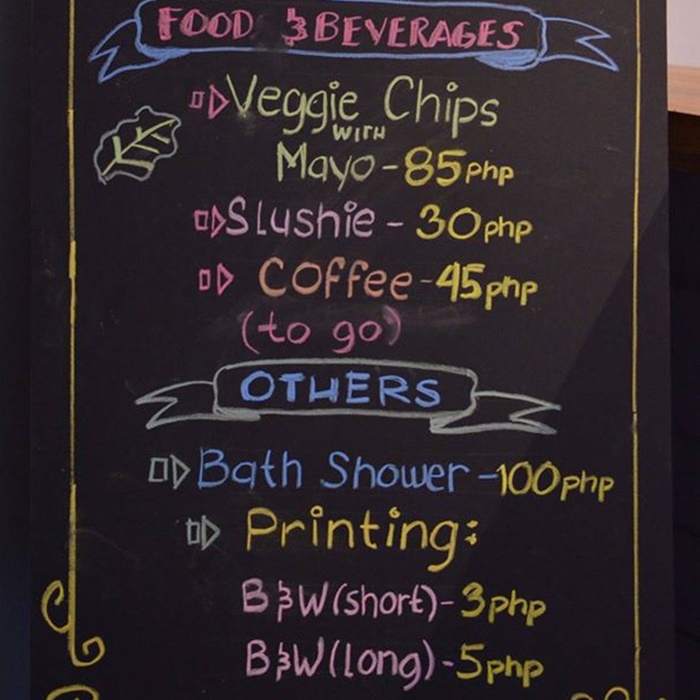 FOOD & BEVERAGES
Veggie Chips
WITH
Mayo - 85php
Slushie - 30php
Coffee - 45php
(to go)
OTHERS
Bath Shower - 100php
Printing:
B&W (short) - 3php
B&W (long) - 5php